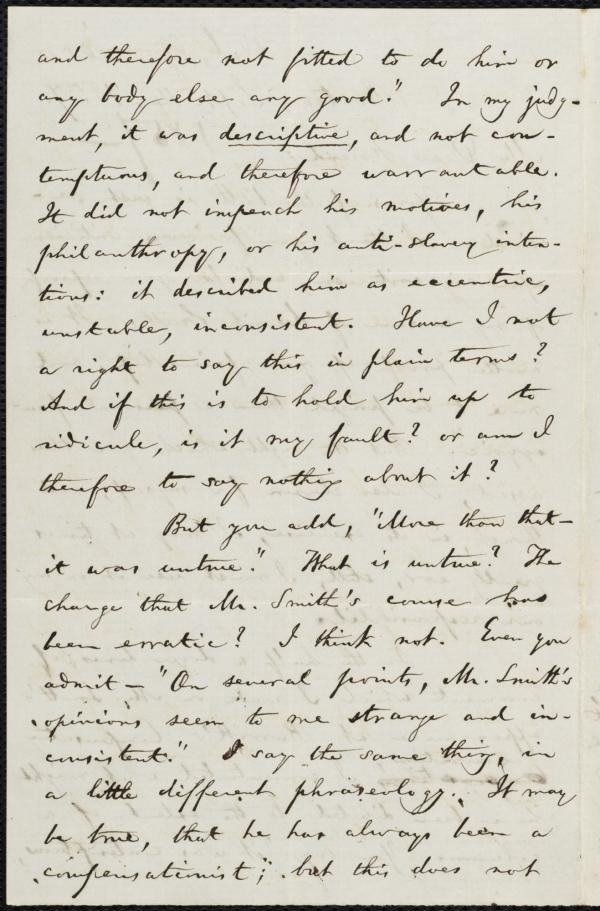 and therefore not fitted to do him or
any body else any good." In my judg-
ment, it was descriptive, and not con-
temptuous, and therefore warrantable.
It did not impeach his motives, his
philanthropy, or his anti-slavery inten-
tions: it described him as eccentric,
unstable, inconsistent. Have I not
a right to say this in plain terms?
And if this is to hold him up to
ridicule, is it my fault? or am I
therefore to say nothing about it?
But you add, "More than that—
it was untrue." What is untrue? The
charge that Mr. Smith's course has
been erratic? I think not. Even you
admit— "On several points, Mr. Smith's
opinions seem to me strange and in-
consistent." I say the same thing, in
a little different phraseology. It may
be true, that he has always been a
"compensationist"; but this does not